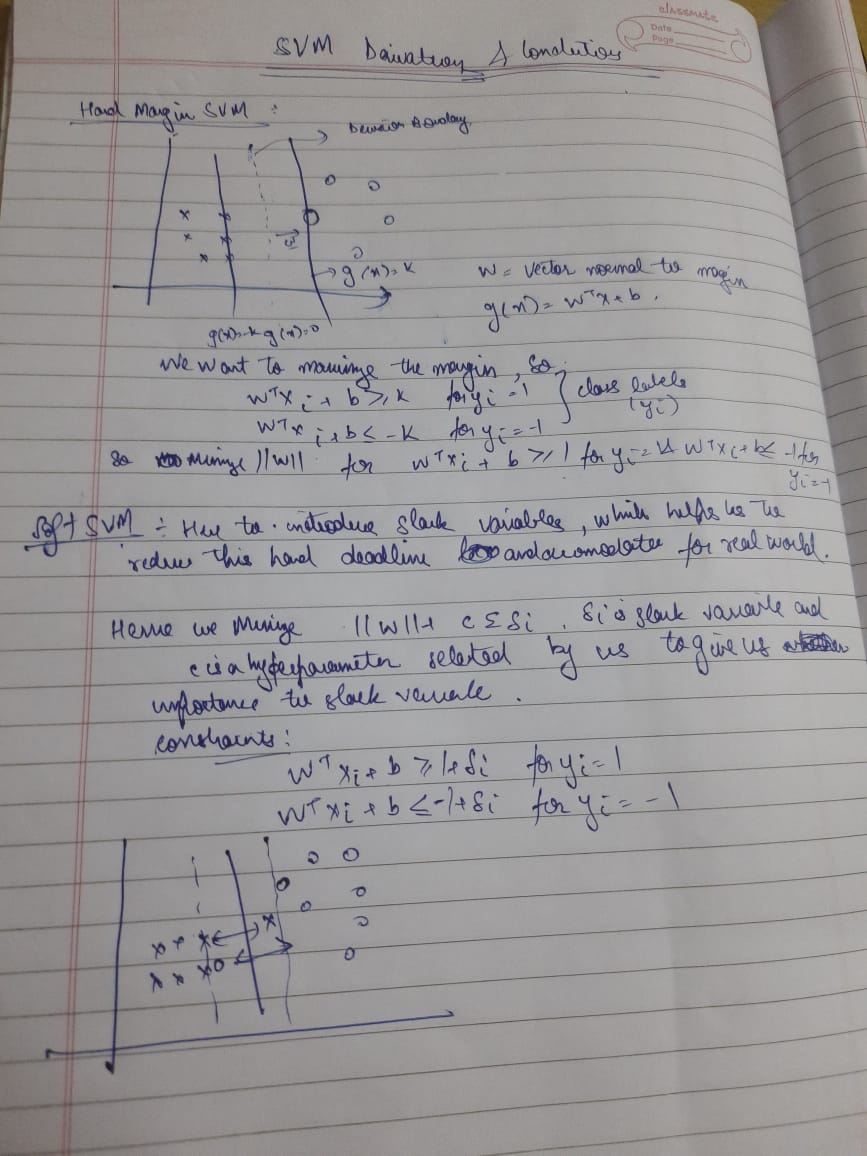 classmate
Date
Page
SVM Derivation & Conditions
Hard Margin SVM :
Decision Boundary
w
g(x)=k
w = vector normal to margin
g(x) = wᵀx + b .
g(x)=-k g(x)=0
We want to the margin, so
wᵀxi + b ≥ k for yi = 1
class labels (yi)
wᵀxi + b ≤ -k for yi = -1
So ||w|| for wᵀxi + b ≥ 1 for yi = 1 & wᵀxi + b ≤ -1 for yi = -1
Soft SVM ÷ Here to introduce slack variables, which helps us to
reduce this hard deadline for real world.
we ||w|| + c Σ δi . δi is slack variable and
c is a hyperparameter selected by us to give us
importance to slack variable .
constraints :
wᵀxi + b ≥ 1+δi for yi = 1
wᵀxi + b ≤ -1+δi for yi = -1